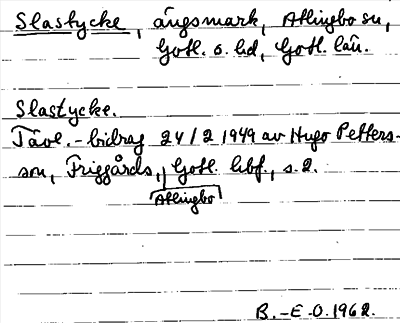 Slastycke, ängsmark, Atlingbo sn,
Gotl. s. hd, Gotl. län.
Slastycke.
Tävl.-bidrag 24/2 1949 av Hugo Petters-
son, Friggårds, Gotl. hbf., s. 2.
Atlingbo
B.-E.O. 1962.